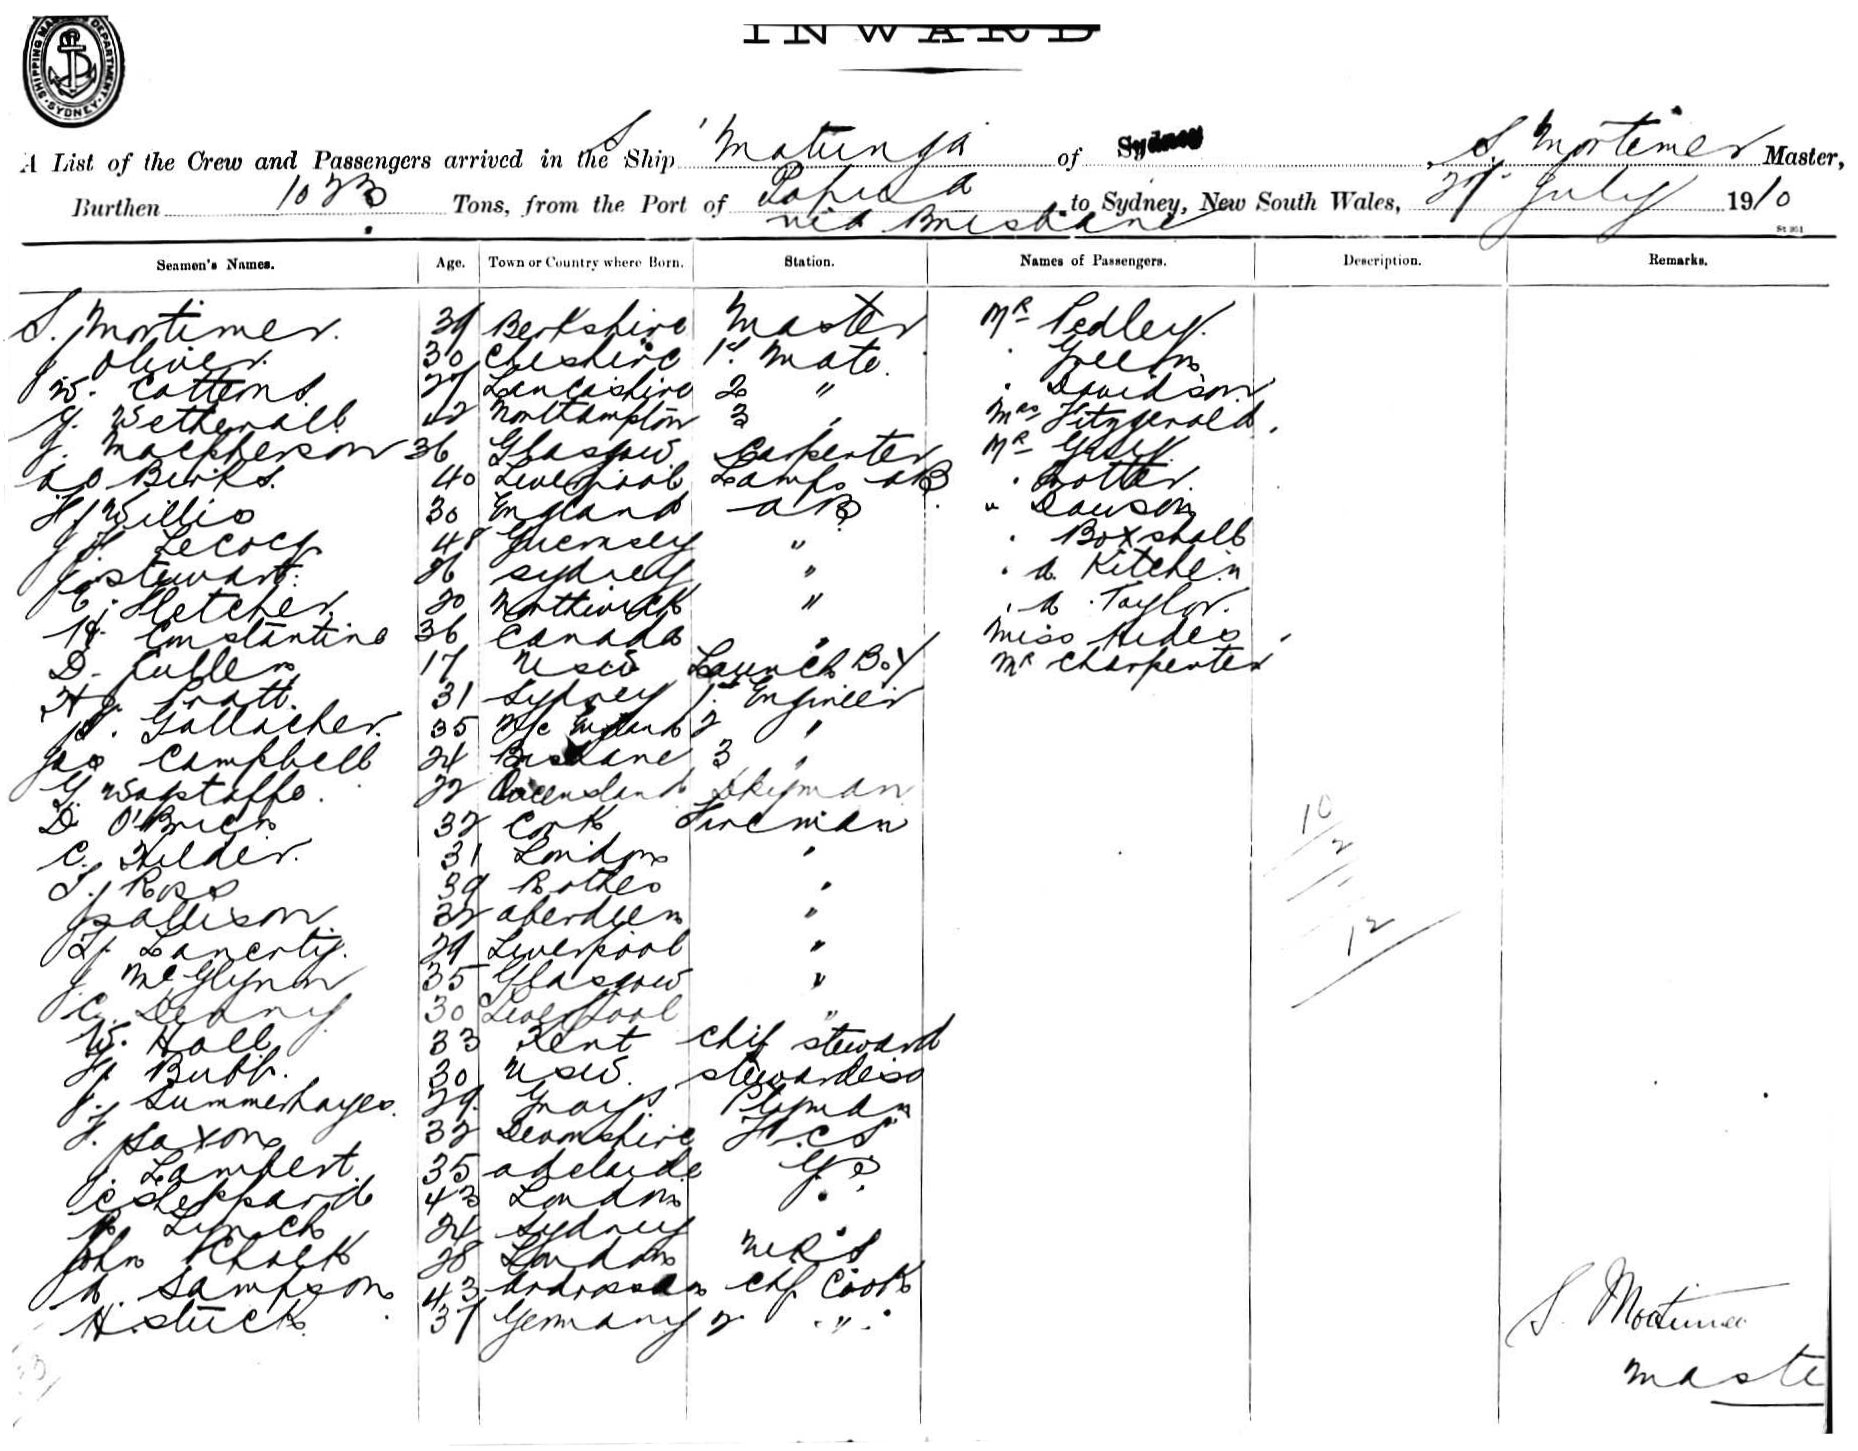 SHIPPING MASTER'S DEPARTMENT · SYDNEY ·
INWARD
A List of the Crew and Passengers arrived in the S Ship Matunga of Sydney, S. Mortimer Master,
Burthen 1023 Tons, from the Port of Papua via Brisbane to Sydney, New South Wales, 27 July 1910
Seamen's Names. Age. Town or Country where Born. Station. Names of Passengers. Description. Remarks.
S. Mortimer. 39 Berkshire Master Mr Pedley.
J Oliver. 30 Cheshire 1st Mate. " Green
W. Cottems 27 Lancashire 2 " " Davidson
G. Wetherall 42 Northampton 3 " Mrs Fitzgerald.
J. Macpherson 36 Glasgow Carpenter Mr
A O Birks. 40 Liverpool Lamps AB " Trotter.
H J Willis 30 England AB " Dawson
J H Lecocq 48 Guernsey " " Boxshall
J Stewart. 26 Sydney " " A. Kitchen
E. Fletcher. 20 Northwick " " A. Taylor.
H. Constantine 36 Canada " Miss Hides
D. Cullen 17 NSW Launch Boy Mr Charpenter
H J. Pratt. 31 Sydney 1st Engineer
P. Gallacher. 35 N/C England 2 "
Jas Campbell 24 Brisbane 3 "
G. Wagstaffe. 22 Queensland Dkyman
D O'Brien 32 Cork Fireman
C. Hilder. 31 London "
T. Ross 39 Rothes "
J Pallison 32 Aberdeen "
T. Lanerty. 29 Liverpool "
J. McGlynn 35 Glasgow "
C. Deany 30 Liverpool "
W. Hall 33 Kent Chif Steward
H. Bubb. 30 NSW. Stewardess
J. Summerhayes. 29. Grays Ptyman
F. Saxon 32 Devonshire F.C.S
J. Lambert 35 Adelaide G S
C Sheppard 43 London "
R Lynch 24 Sydney "
John Chalk 28 London M R S
A. Sampson 43 Ardrossan Chf Cook
H. Stuck 37 Germany 2 "
10
2
12
33
S. Mortimer
Maste